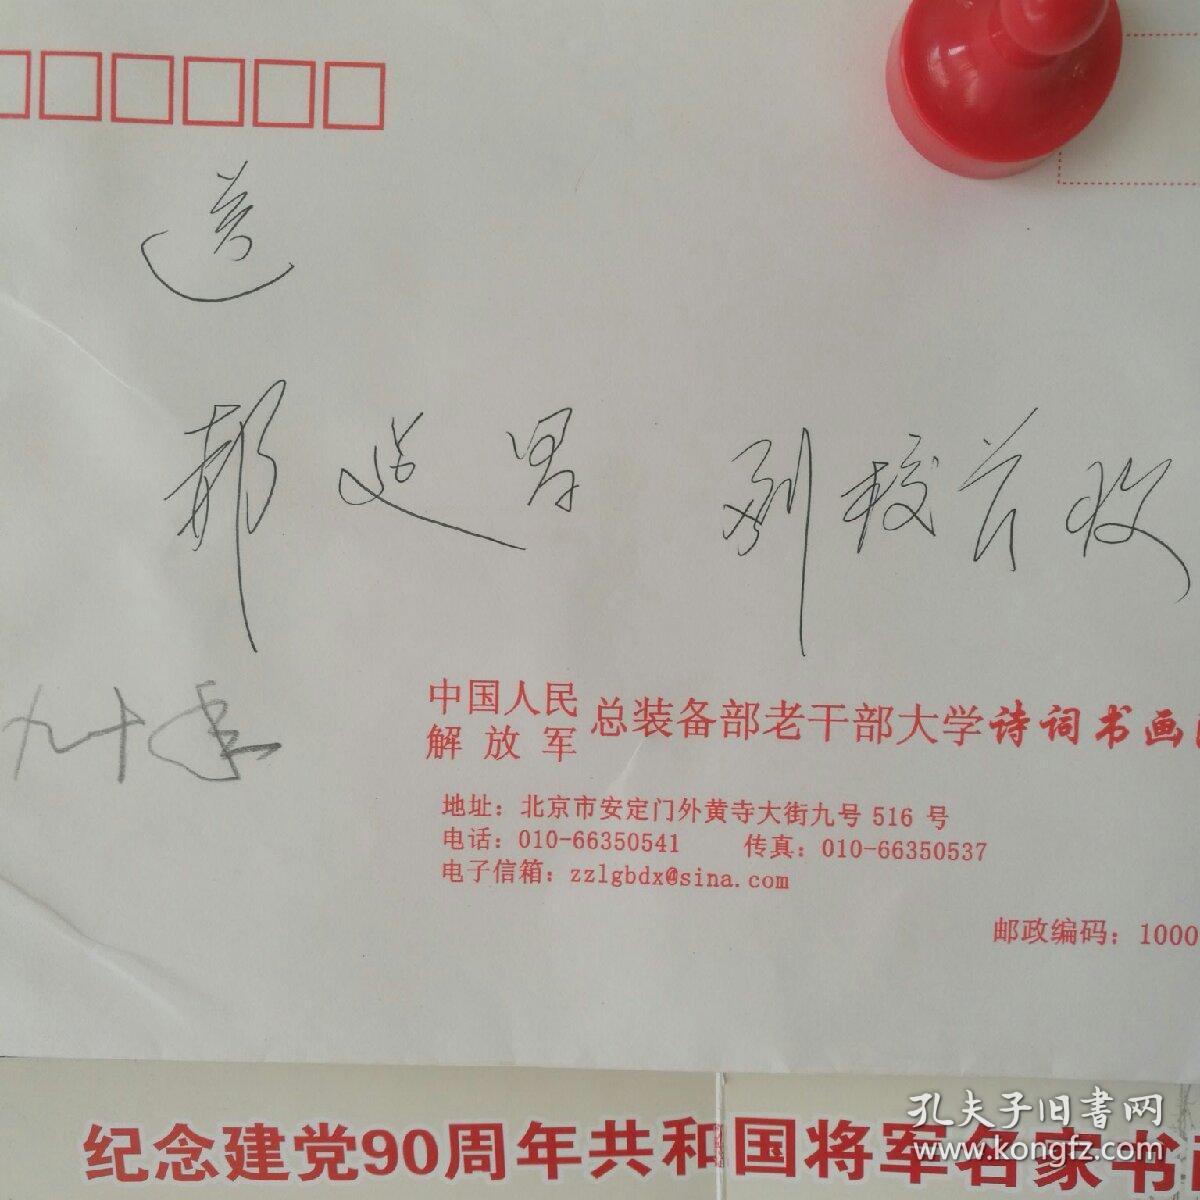 送
郝 副校长收
九十年
中国人民
解放军
总装备部老干部大学诗词书画
地址：北京市安定门外黄寺大街九号 516 号
电话：010-66350541 传真：010-66350537
电子信箱：zzlgbdx@sina.com
邮政编码：1000
纪念建党90周年共和国将军名家书画
孔夫子旧书网
www.kongfz.com